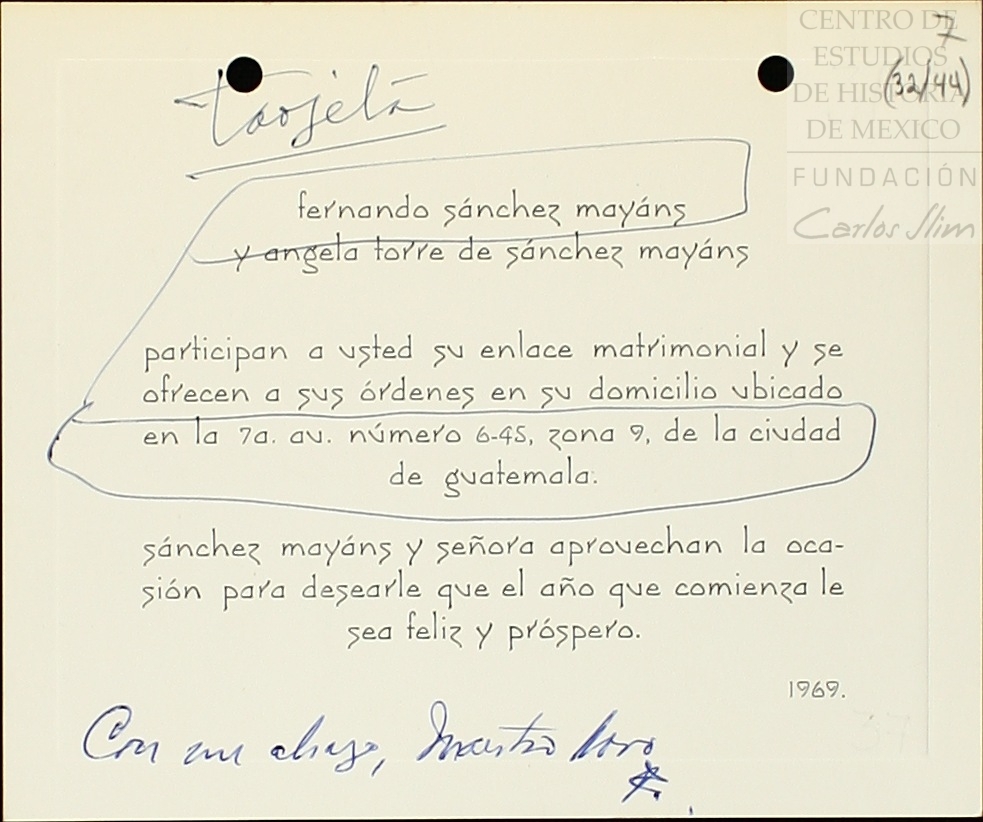 CENTRO DE
ESTUDIOS
DE HISTORIA
DE MEXICO
FUNDACIÓN
Carlos Slim
7
(32/44)
tarjeta
fernando sánchez mayáns
y angela torre de sánchez mayáns
participan a usted su enlace matrimonial y se
ofrecen a sus órdenes en su domicilio ubicado
en la 7a. av. número 6-45, zona 9, de la ciudad
de guatemala.
sánchez mayáns y señora aprovechan la oca-
sión para desearle que el año que comienza le
sea feliz y próspero.
1969.
Con un abrazo, Maestro